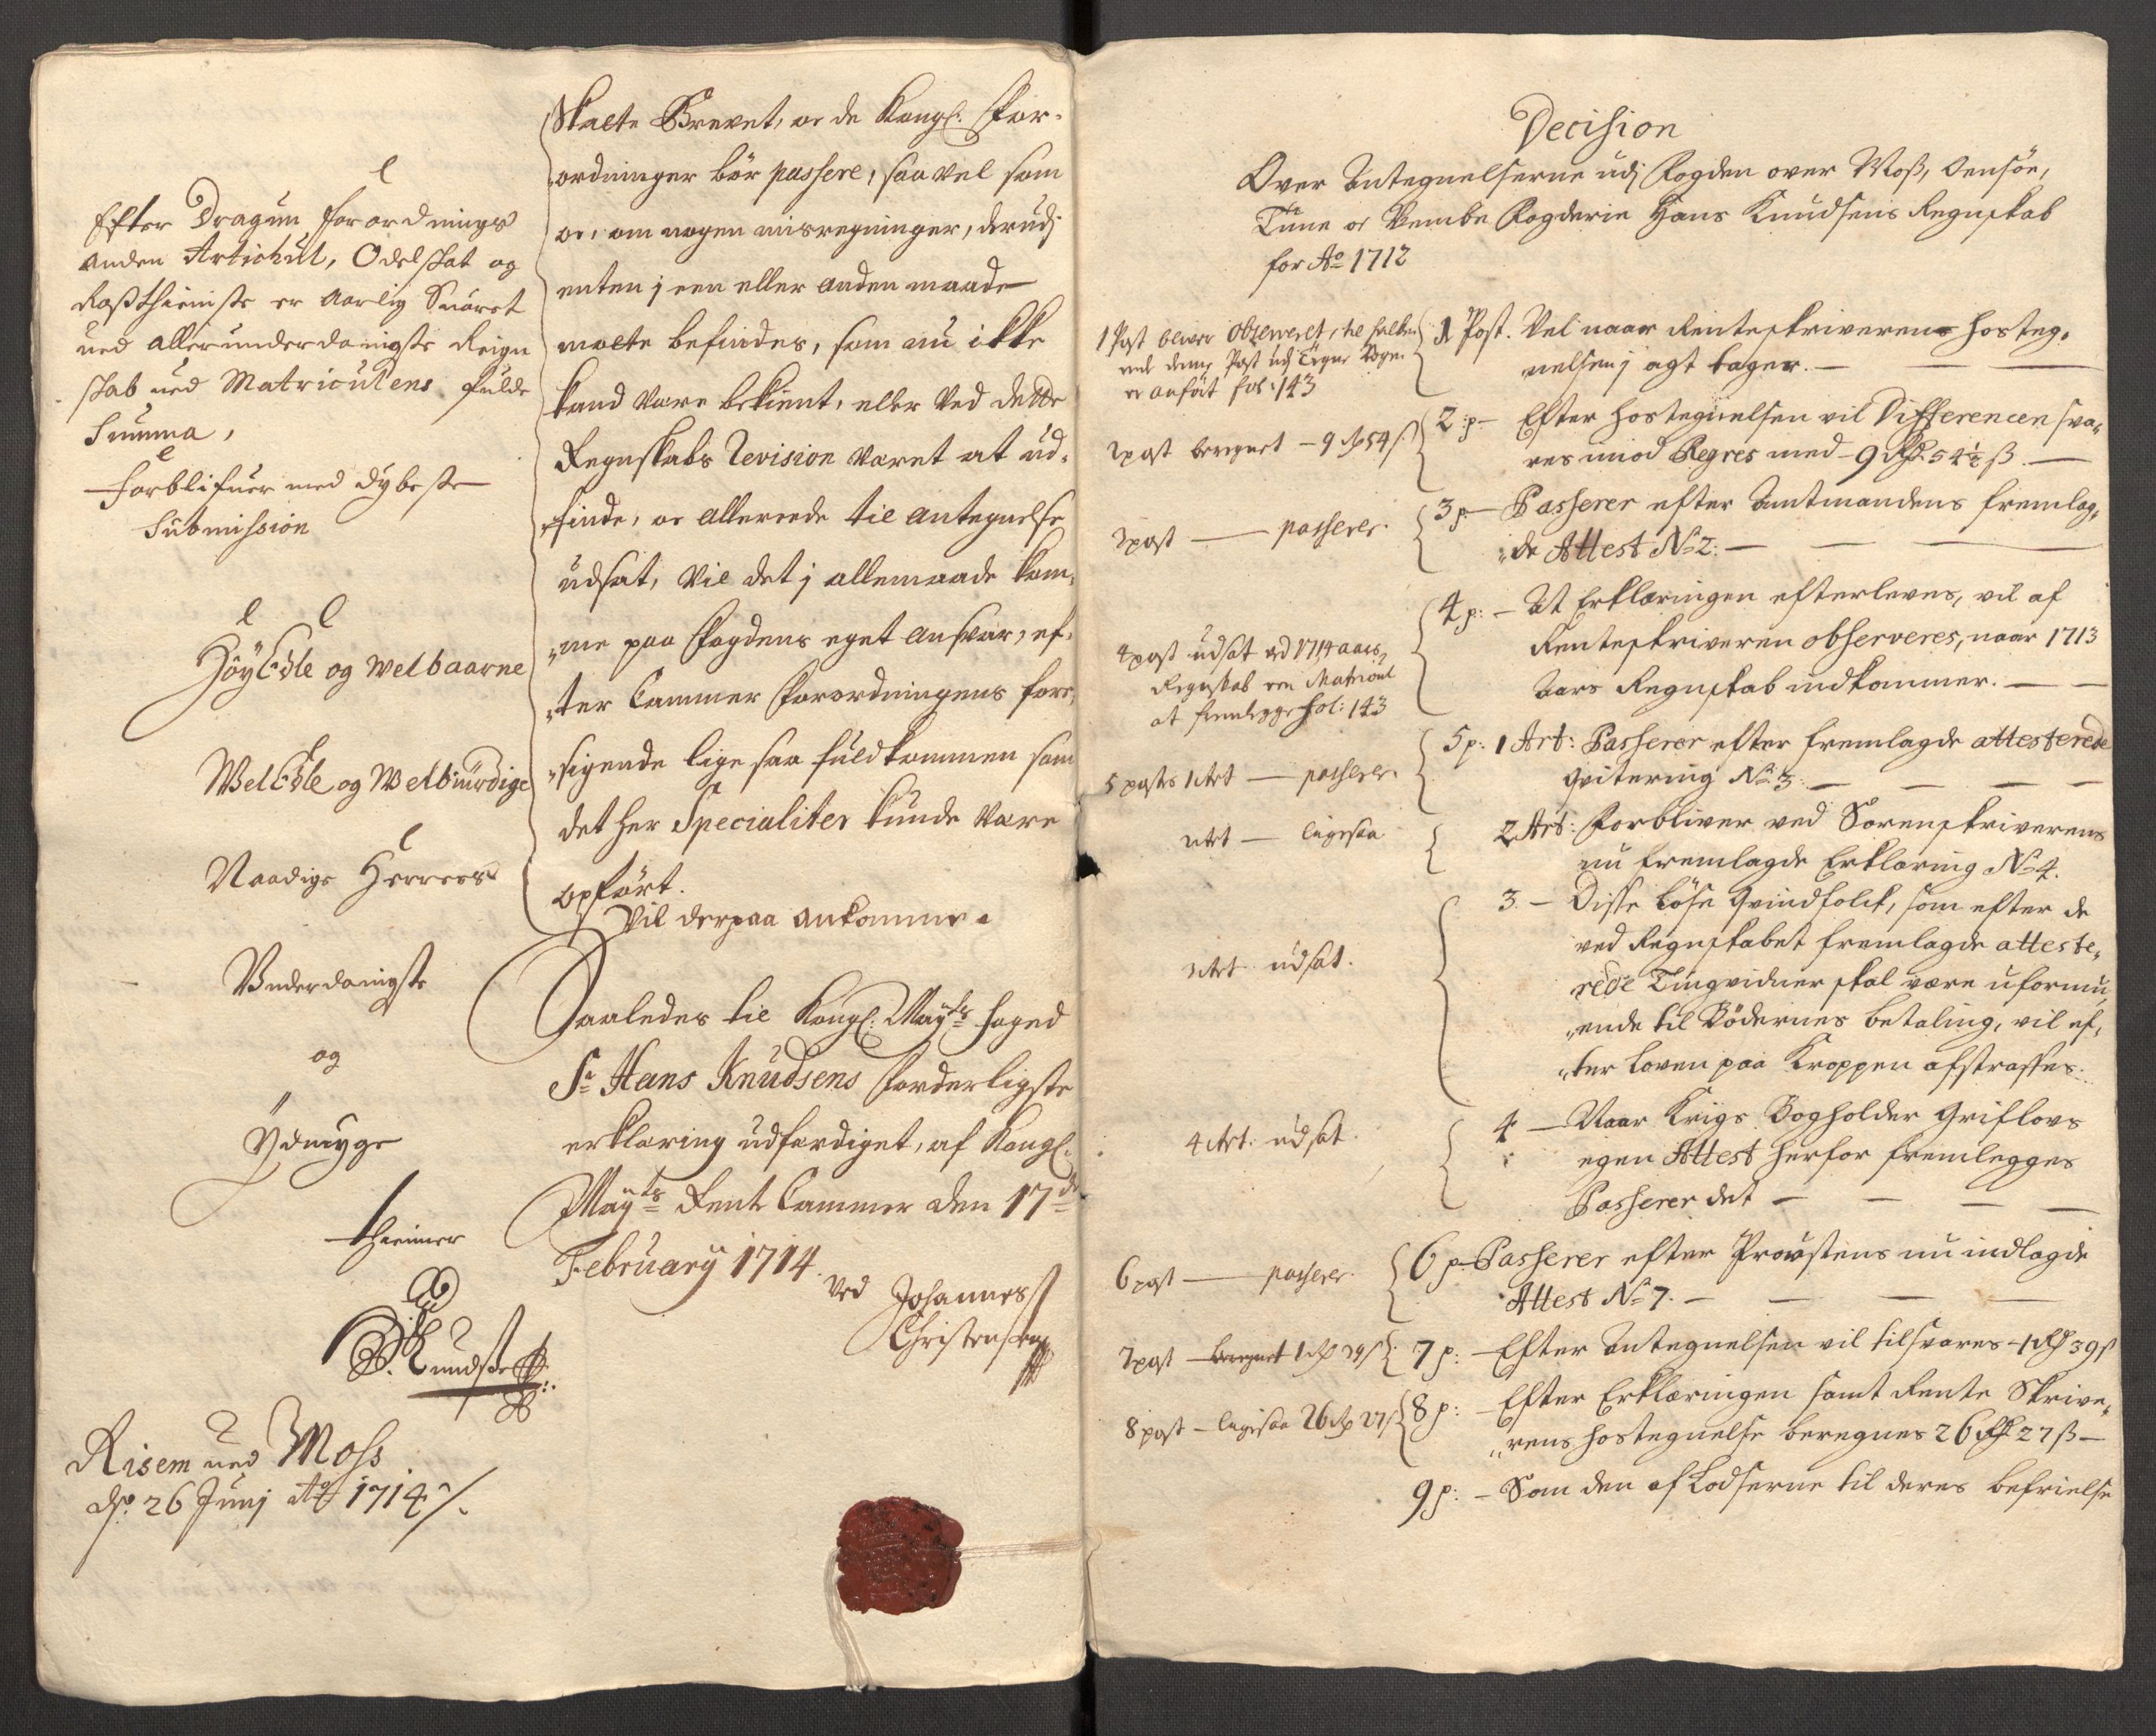 Efter Dragun forordnings
anden Artichul, Odelskat og
Rosthieniste er Aarlig Svaret
ved allerunderdanigste Reign
skab ved Matriculens fulde
Summa,
Forblifuer med dybeste
Submission
HöyEdle og Welbaarne
WelEdle og Welbiurdige
Naadige Herrers
Underdanigste
og
Ydmyge
thiener
Knudsen
Risem ved Moss
dn. 26 Junj Ao 1714
Skatte Brevet, oc de Kongl. For-
ordninger bör passere, saa vel som
oc, om nogen misregninger, derudj
enten j een eller anden maade
motte befindes, som nu ikke
kand være bekient, eller ved dette
Regnskabs Revision været at ud-
finde, oc allereede til antegnelse
udsat, vil det j allemaade kom-
me paa Fogdens eget ansvar, ef-
ter Cammer Forordningens fore-
sigende lige saa fuldkommen som
det her Specialiter kunde være
opfört.
Vil derpaa ankomme.
Saaledes til Kongl: Mayts foged
Sr Hans Knudsens forderligste
erklæring udferdiget, af Kongl.
Mayts Rente Cammer den 17de
February 1714.
ved Johannes
Christensen
Decision
Over Antegnelserne udj Fogden over Moss, Oensöe,
Tune oc Vembe Fogderie Hans Knudsens Regnskab
for Ao 1712
1 Post bliver observeret, til
denne Post udj
er anfört fol: 143
1 Post. Vel naar Renteskriverens hosteg-
nelse j agt tages.
2 post beregnet - 9 rd 54 s
2 p - Efter hostegnelsen vil Differencen sva-
res imod Regres med - 9 Rdr 54 1/2 ß
3 post - passerer.
3 p - Passerer efter Amtmandens fremlag-
de Attest No 2.
4 post udsat ved 1714 aars
Regnskab een Matricul
at fremlegge fol: 143
4 p: - At Erklæringen efterleves, vil af
Renteskriveren observeres, naar 1713
Aars Regnskab indkommer.
5 posts 1 Art - passerer.
5 p: 1 Art: Passerer efter fremlagde attesterede
qvitering No 3.
2 Art - ligesaa
2 Art: Forbliver ved Sorenskriverens
nu fremlagde Erklæring No 4.
3 Art udsat.
3 - Disse löse Qvindfolk, som efter de
ved Regnskabet fremlagde atteste-
rede Tingvidner skal være uformu-
ende til Bödernes betaling, vil ef-
ter loven paa Kroppen afstraffes.
4 Art: udsat.
4 - Naar Krigs Bogholder Griflovs
egen Attest herfor fremlegges
Passerer det
6 post - passerer.
6 p Passerer efter Provstens nu indlagde
Attest No 7.
7 post - beregnet 1 rd 39 s
7 p: - Efter Antegnelsen vil tilsvares - 1 Rd 39 s
8 post - ligesaa 26 rd 27 s
8 p: - Efter Erklæringen samt Rente Skrive-
rens hostegnelse beregnes 26 Rd 27 ß
9 p: - Som den af Lodserne til deres befrielse